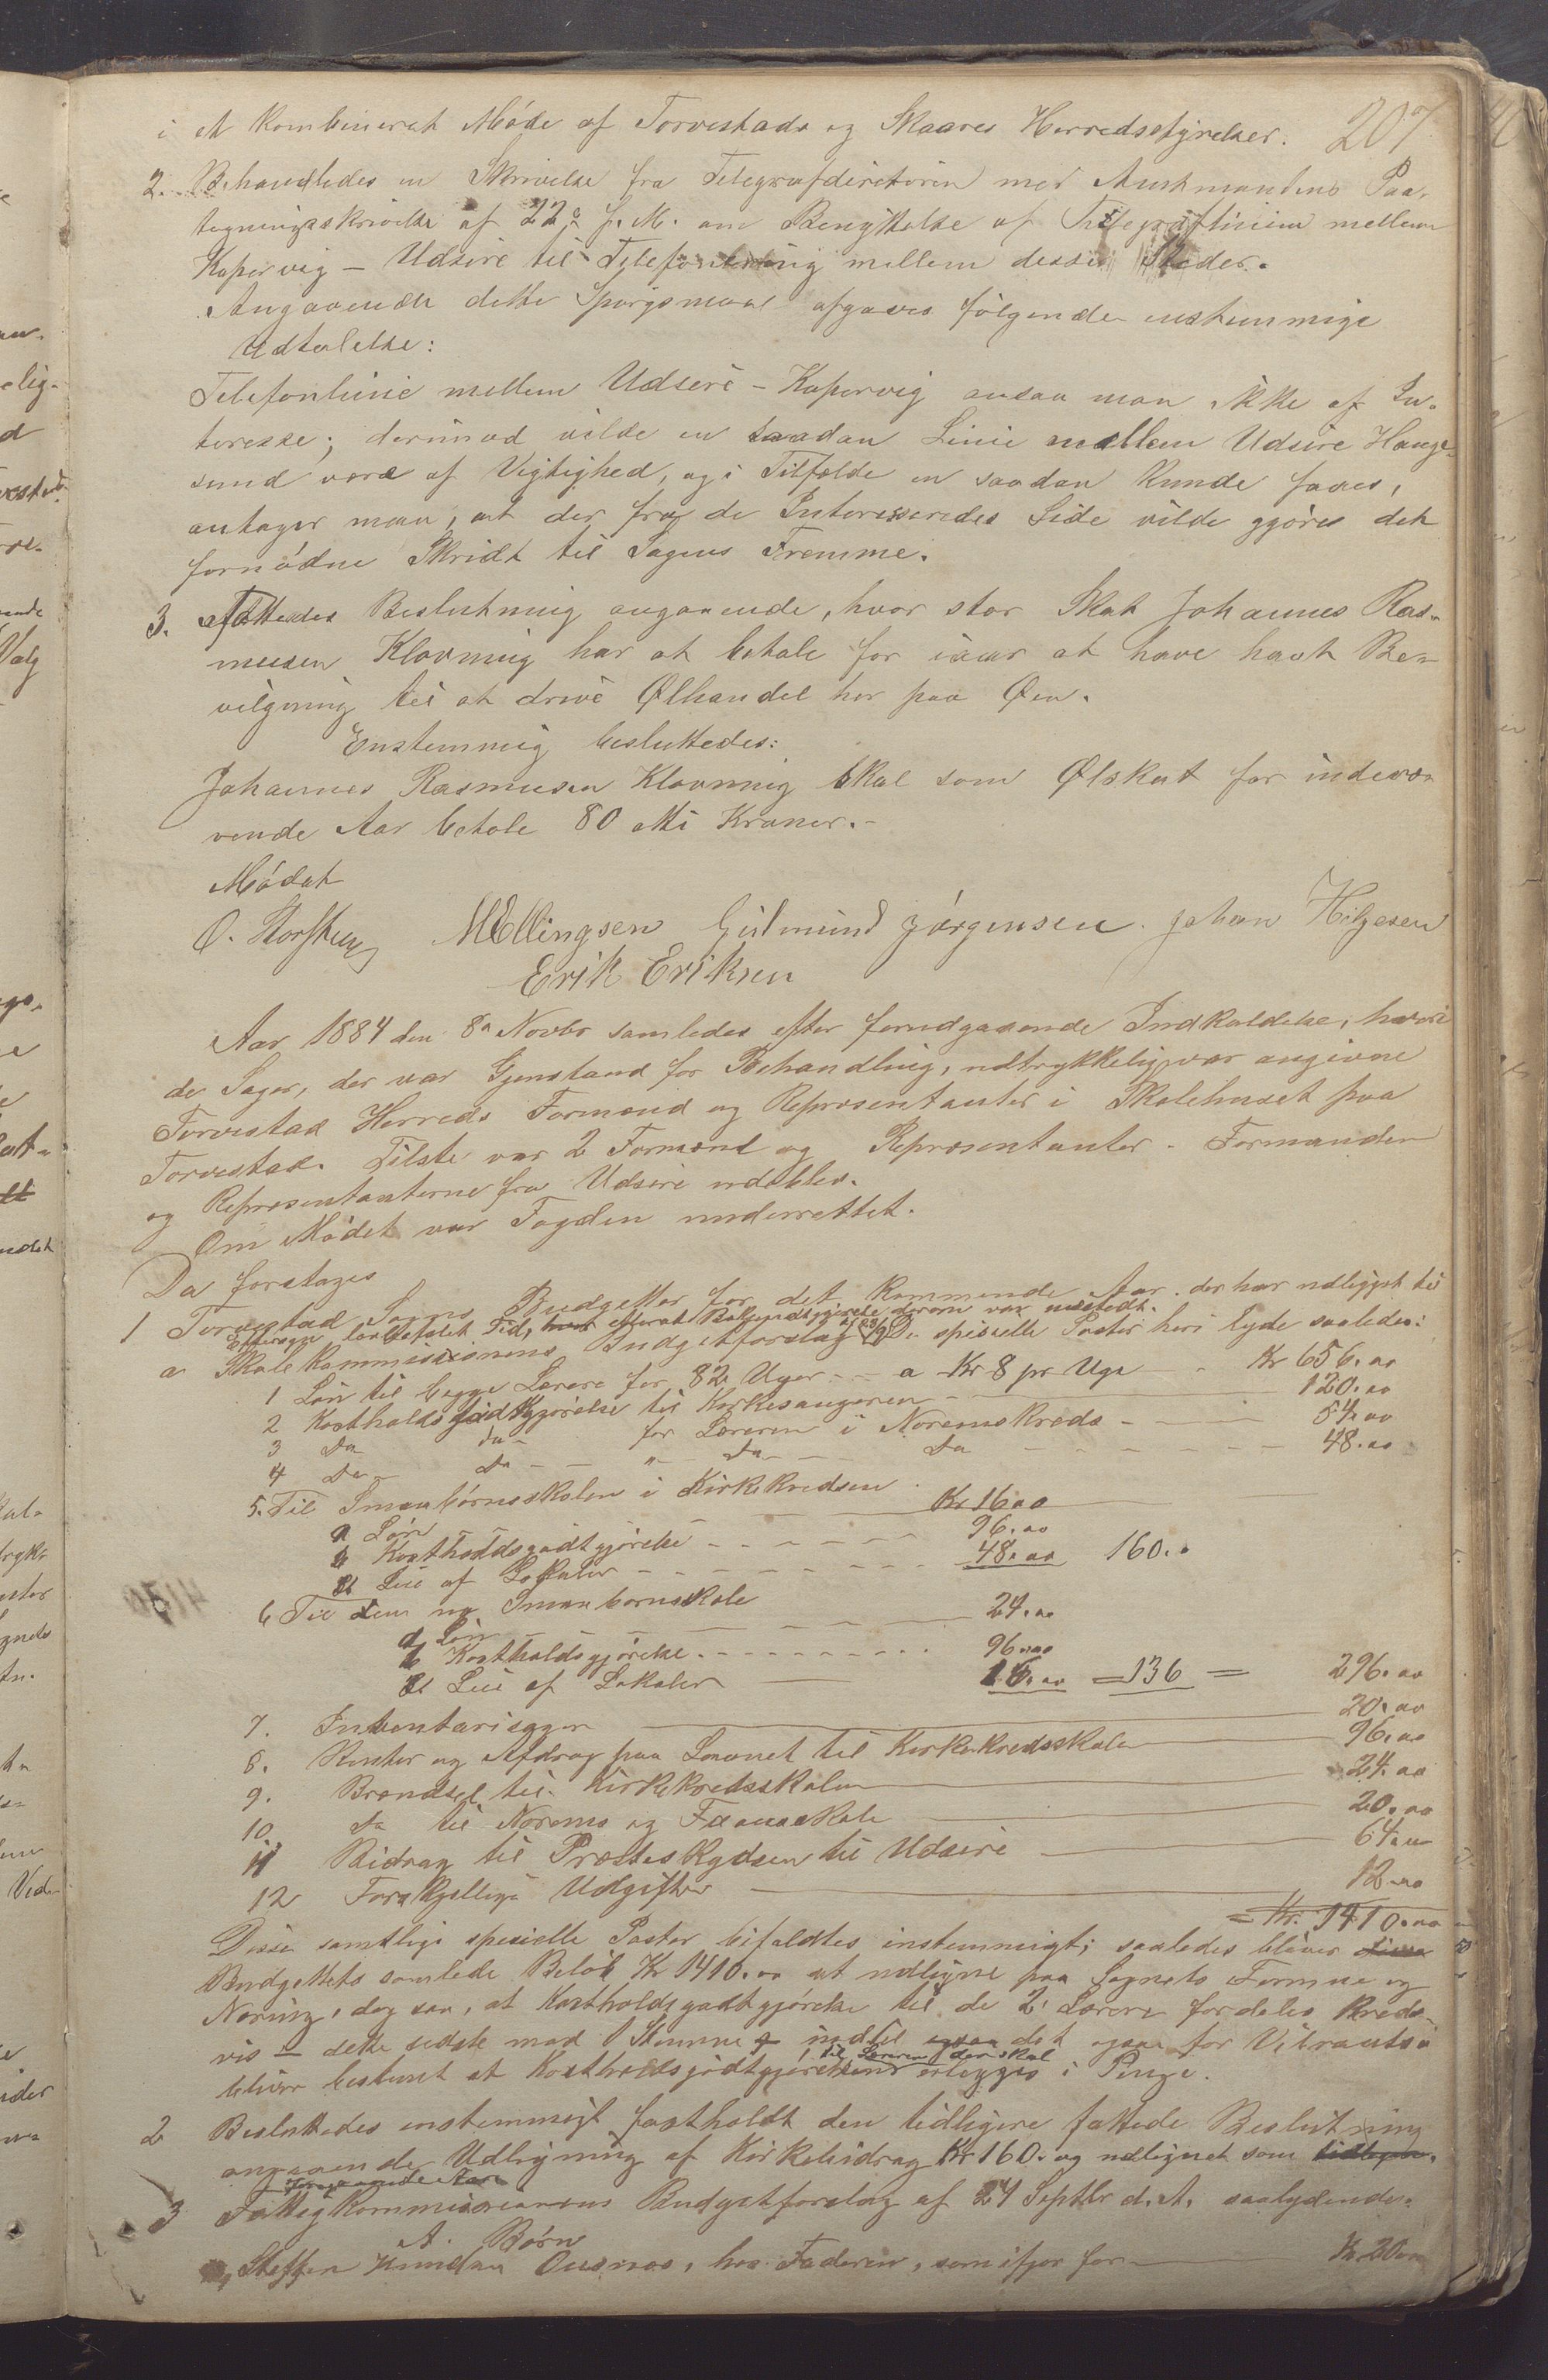 207
i et kombineret Møde af Torvestads og Skaares Herredsstyrelser.
2. Behandledes en Skrivelse fra Telegrafdirektøren med Amtmandens Paa-
tegningsskrivelse af 22de f. M. om Benyttelse af Telegraflinien mellem
Kopervig – Udsire til Telefonledning mellem disse Steder.
Angaaende dette Spørgsmaal afgaves følgende enstemmige
Udtalelse:
Telefonlinie mellem Udsire – Kopervig ansaa man ikke af In-
teresse; derimod vilde en saadan Linie mellem Udsire Hauge-
sund være af Vigtighed, og i Tilfælde en saadan kunde faaes,
antager man, at der fra de Interesseredes Side vilde gjøres det
fornødne Skridt til Sagens Fremme.
3. Fattedes Beslutning angaaende, hvor stor Skat Johannes Ras-
musen Klovning har at betale for iaar at have havt Be-
vilgning til at drive Ølhandel her paa Øen.
Enstemmig besluttedes:
Johannes Rasmusen Klovning skal som Ølskat for indevæ-
rende Aar betale 80 otti Kroner.-
Mødet
O. Storsteen M Ellingsen Gudmund Jørgensen. Johan Helgesen
Erik Eriksen
Aar 1884 den 8de Novbr samledes efter forudgaaende Indkaldelse, hvori
de Sager, der var Gjenstand for Behandling, udtrykkelig var angivne
Torvestad Herreds Formænd og Repræsentanter i Skolehuset paa
Torvestad. Tilste var 2 Formænd og Repræsentanter - Formanden
og Repræsentanterne fra Udsire udeblev.
Om Mødet var Fogden underrettet.
Da foretoges
1 Torvestad Sogns Budgetter for det kommende Aar. der har udligget til
Eftersyn lovbefalet Tid, efterat Bekjendtgjørelse derom var udstedt.
a Skolekommissionens Budgetforslag De spicielle Poster heri lyde saaledes:
1 Løn til begge Lærere for 82 Uger - - a Kr 8 pr Uge - - Kr 656.00
2 Kostholdsgodtgjørelse til Kirkesangeren - 120.00
3 Do do - for Læreren i Norems Kreds - - - 54.00
4 Do - Do - - " - Do - - Do - - - - 48.00
5. Til Smaabørnsskolen i Kirkekredsen
a Løn Kr 16 00
b Kostholdsgodtgjørelse - - - - - 96.00
c Leie af Lokaler - - - - - - - 48.00 160..
6 Til den ny Smaabørnsskole
a Løn 24.00
b Kostholdsgjørelse. - - - - - - - - 96.00
c Leie af Lokaler 16.00 = 136 = 296.00
7. Inventarisager 20.00
8. Renter og Afdrag paa Laanet til Kirkekredsskolen 96.00
9. Brændsel til Kirkekredsskolen 24.00
10 Do til Norems og Skole 20.00
11 Bidrag til Præsteskydsen til Udsire 64.00
12 Forskjellige Udgifter 12.00
= Kr. 1410.00
Disse samtlige spesielle Poster bifaldtes enstemmigt; saaledes bliver
Budgettets samlede Beløb Kr 1410.00 at udligne paa Sognets Formue og
Næring, dog saa, at Kostholdsgodtgjørelse til de 2 Lærere fordeles kreds-
vis – dette sidste mod 1 Stemme indtil det ogsaa for
til Læreren der skal
bliver bestemt at Kostholdsgodtgjørelsen erlægges i Penge.
2 Besluttedes enstemmigt fastholdt den tidligere fattede Beslutning
angaaende Udligning af Kirkebidrag Kr 160. og udlignet som tidligere.
foregaaende Aar
3 Fattigkommissionens Budgetforslag af 24 Septbr d. A. saalydende:
A. Børn
Steffen Osnes, hos Faderen, som ifjor for - Kr 20.00